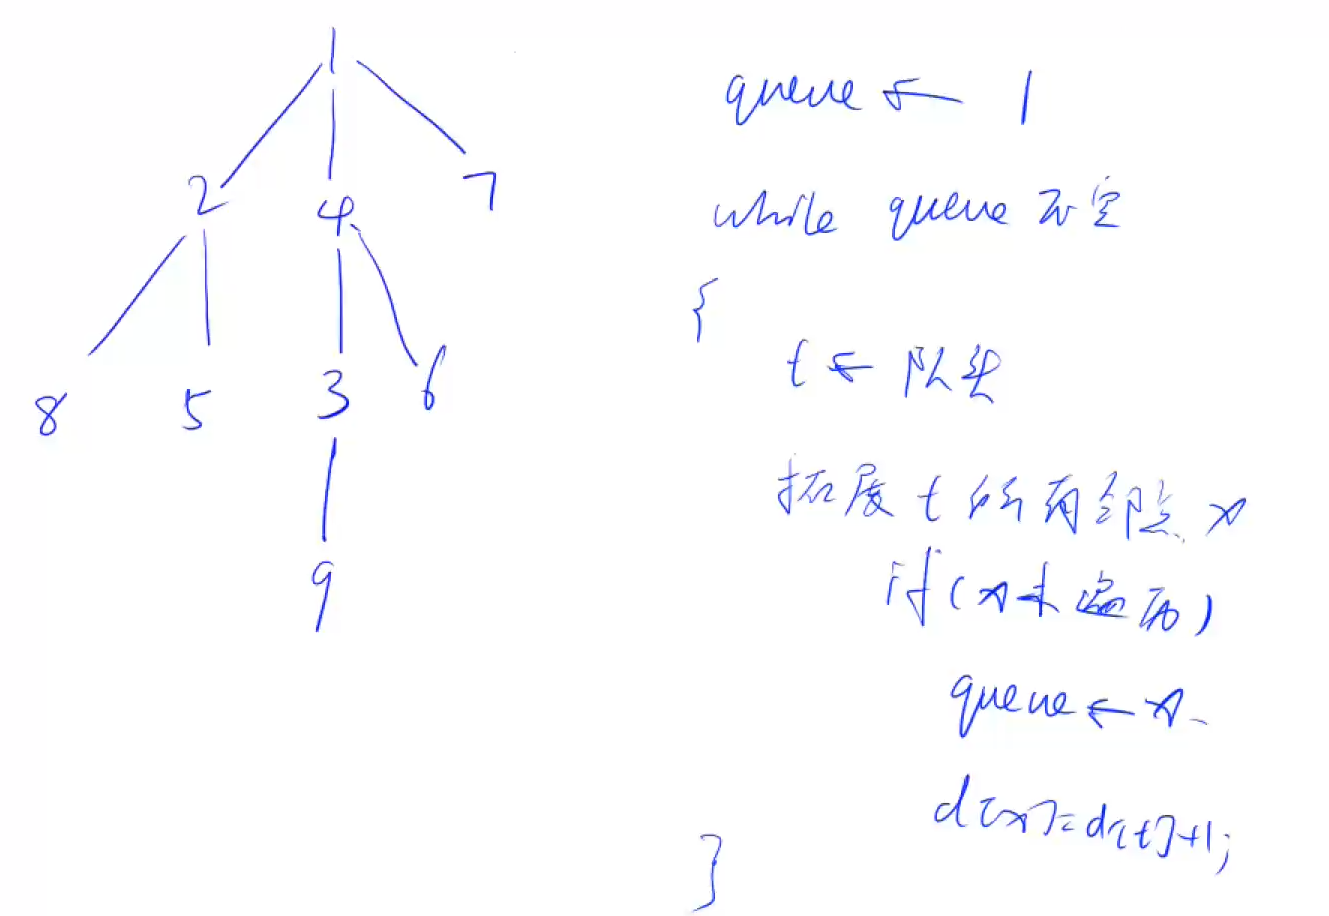 1
2 4 7
8 5 3 6
9
queue ← 1
while queue 不空
{
t ← 队头
拓展 t 所有邻点 x
if(x未遍历)
queue ← x
d[x]=d[t]+1;
}